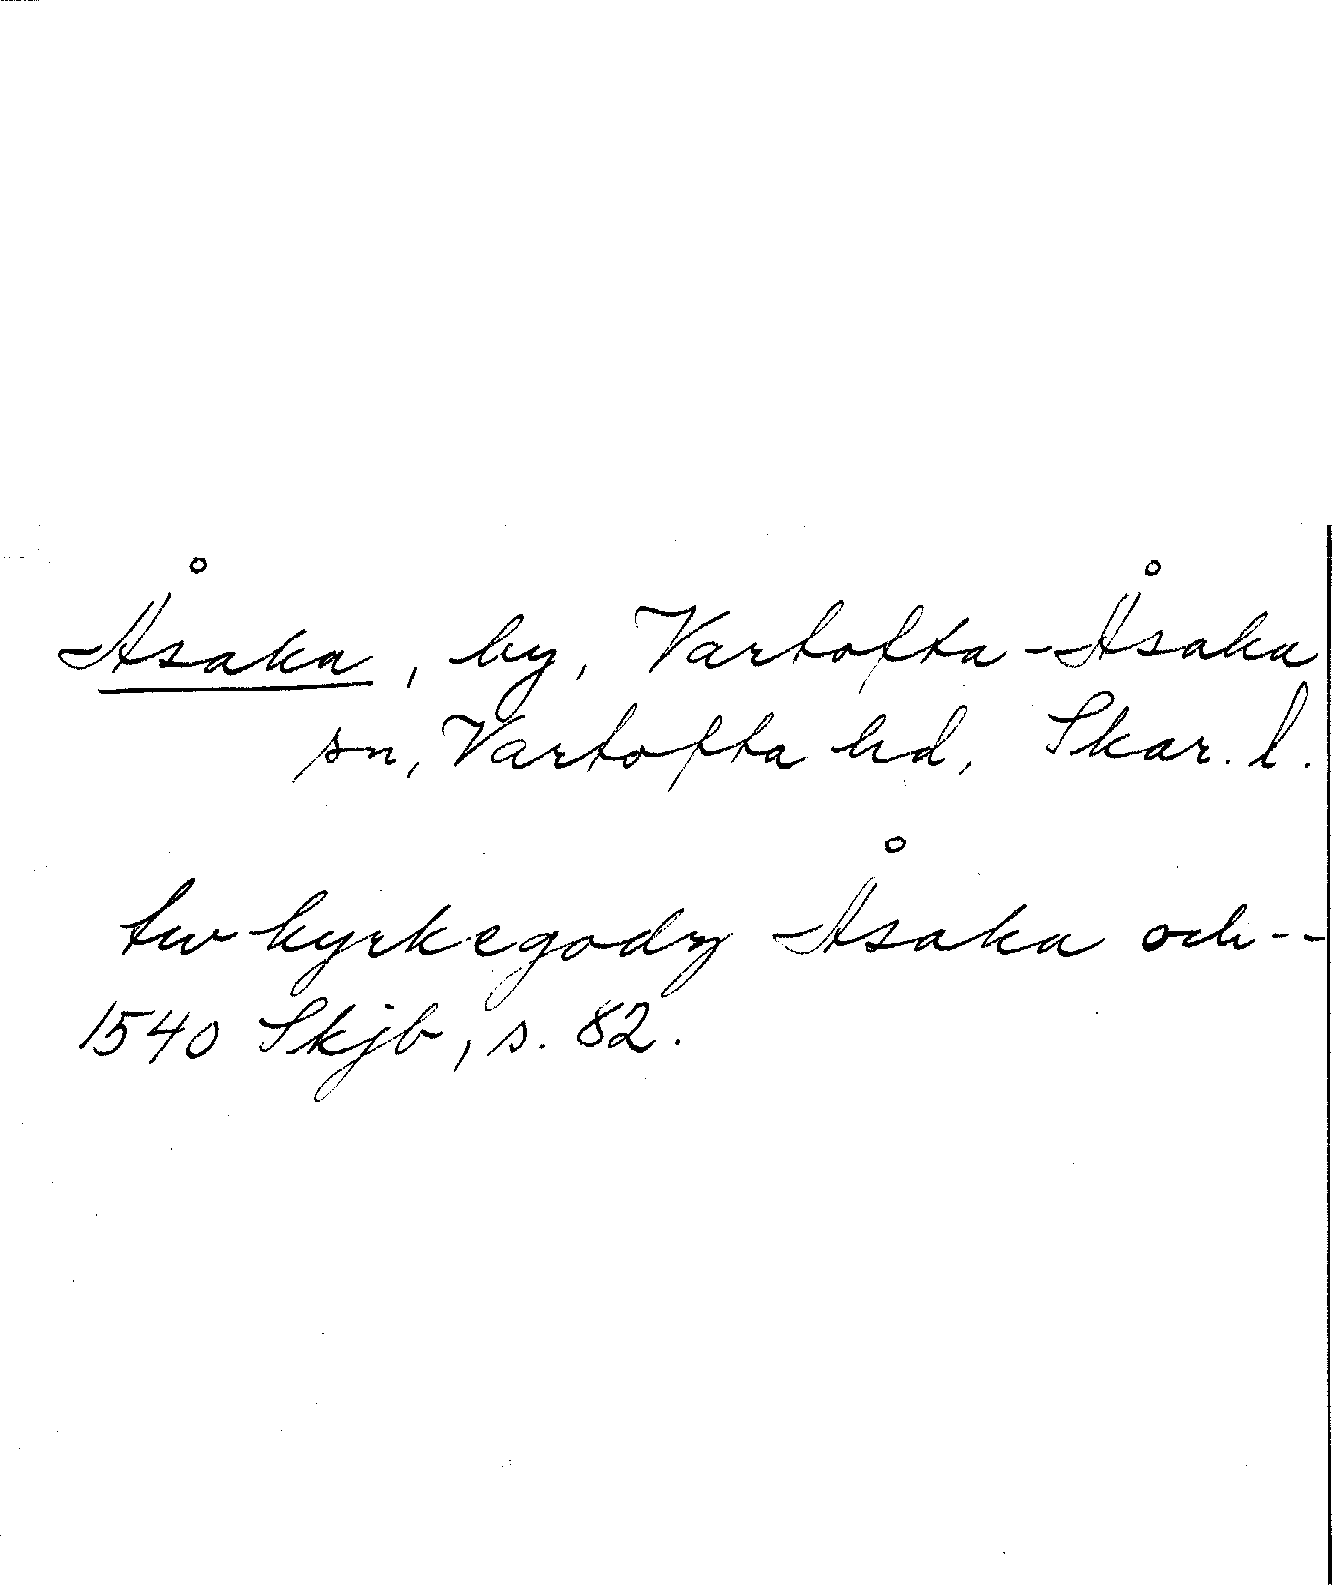 Åsaka, by, Vartofta-Åsaka
sn, Vartofta hd, Skar. l.
tw kyrkegodz Åsaka och--
1540 Skjb, s. 82.